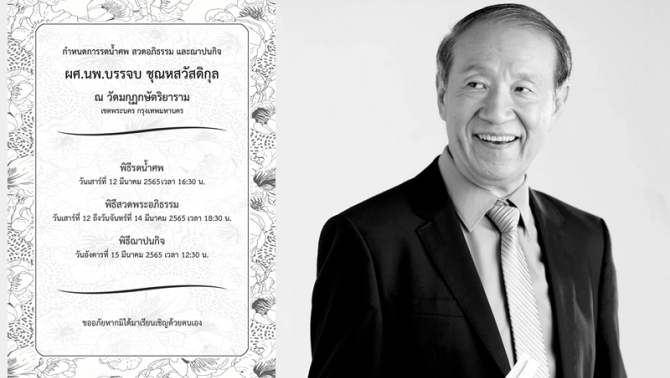 กำหนดการรดน้ำศพ สวดอภิธรรม และฌาปนกิจ
ผศ.นพ.บรรจบ ชุณหสวัสดิกุล
ณ วัดมกุฏกษัตริยาราม
เขตพระนคร กรุงเทพมหานคร
พิธีรดน้ำศพ
วันเสาร์ที่ 12 มีนาคม 2565 เวลา 16:30 น.
พิธีสวดพระอภิธรรม
วันเสาร์ที่ 12 ถึงวันจันทร์ที่ 14 มีนาคม 2565 เวลา 18:30 น.
พิธีฌาปนกิจ
วันอังคารที่ 15 มีนาคม 2565 เวลา 12:30 น.
ขออภัยหากมิได้มาเรียนเชิญด้วยตนเอง